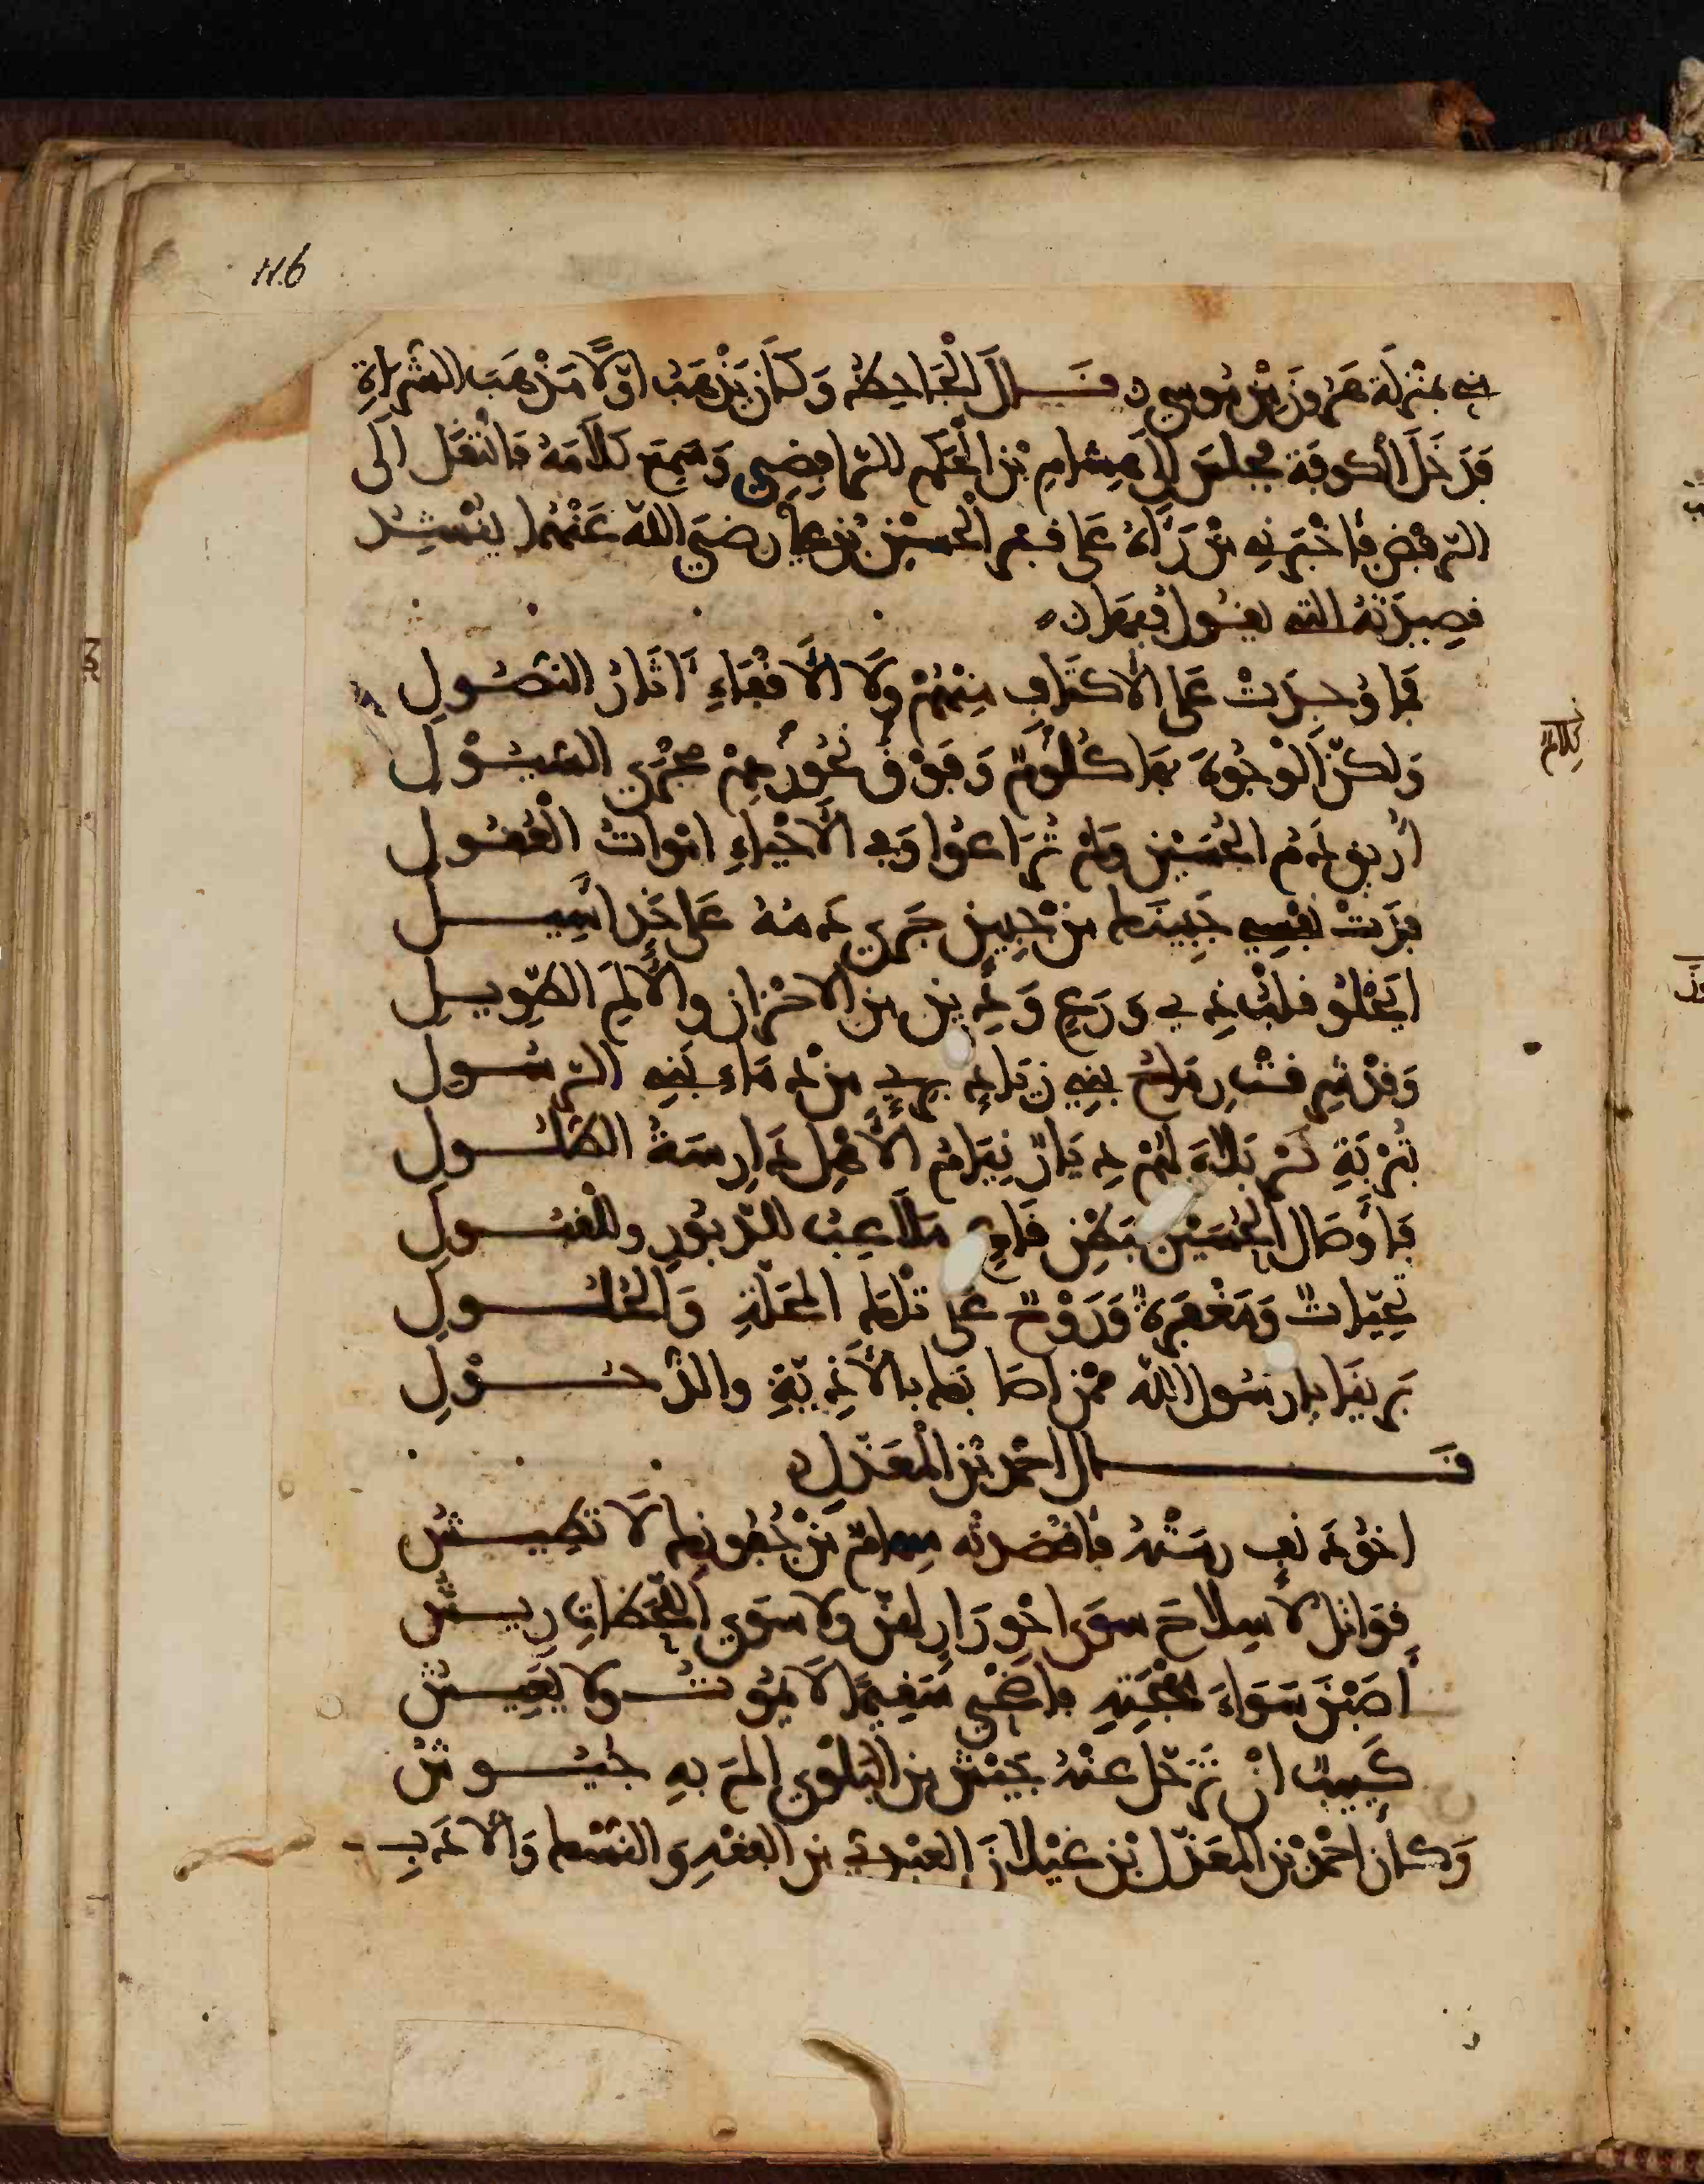 116
فيه بمنزلة هرون من موسى قــال الجاحظ وكان يذهب اولا مذهب الشراة
فدخل الكوفة فجلس الى هشام بن الحكم الرافضي وسمع كلامه فانتقل الى
الترفض فاخبرني من رآه على قبر الحسين بن علي رضي الله عنهما ينشد
قصيدته التي يقول فيها
فما وجدت على الاكتاف منهم ولا الاقفاء آثار النصول
ولكن الوجوه بها كلوم وفوق نحورهم مجرى السيول
أريق دم الحسين ولم تراعوا وفي الاحياء اموات العقول
فدت نفسي جبينك من جبين جرى دمه على خد اسيل
ايخلو قلب ذي ورع ودين من الاحزان والالم الطويل
وقد شرقت رماح بني زياد بري من دماء بني الرسول
بتربة كربلاء لهم ديار نيام الاهل دارسة الطلول
فاوصال الحسين ببطن قاع ملاعب للدبور وللقبول
تحيات ومغفرة وروح على تلك المحلة والحلول
برينا يا رسول الله ممن اصابك بالاذية والذحول
قــال احمد بن المعذل
اخو دنف رمته فاقصدته سهام من جفونك لا تطيش
قواتل لا سلاح سوى احورار لهن ولا سوى اللحظات ريش
أصبن سواء مهجته فاضحى سقيما لا يموت ولا يعيش
كئيبا ان ترحل عنه جيش من البلوى الم به جيوش
وكان احمد بن المعذل بن غيلان العبدي من الفقه والنسك والادب
كلام